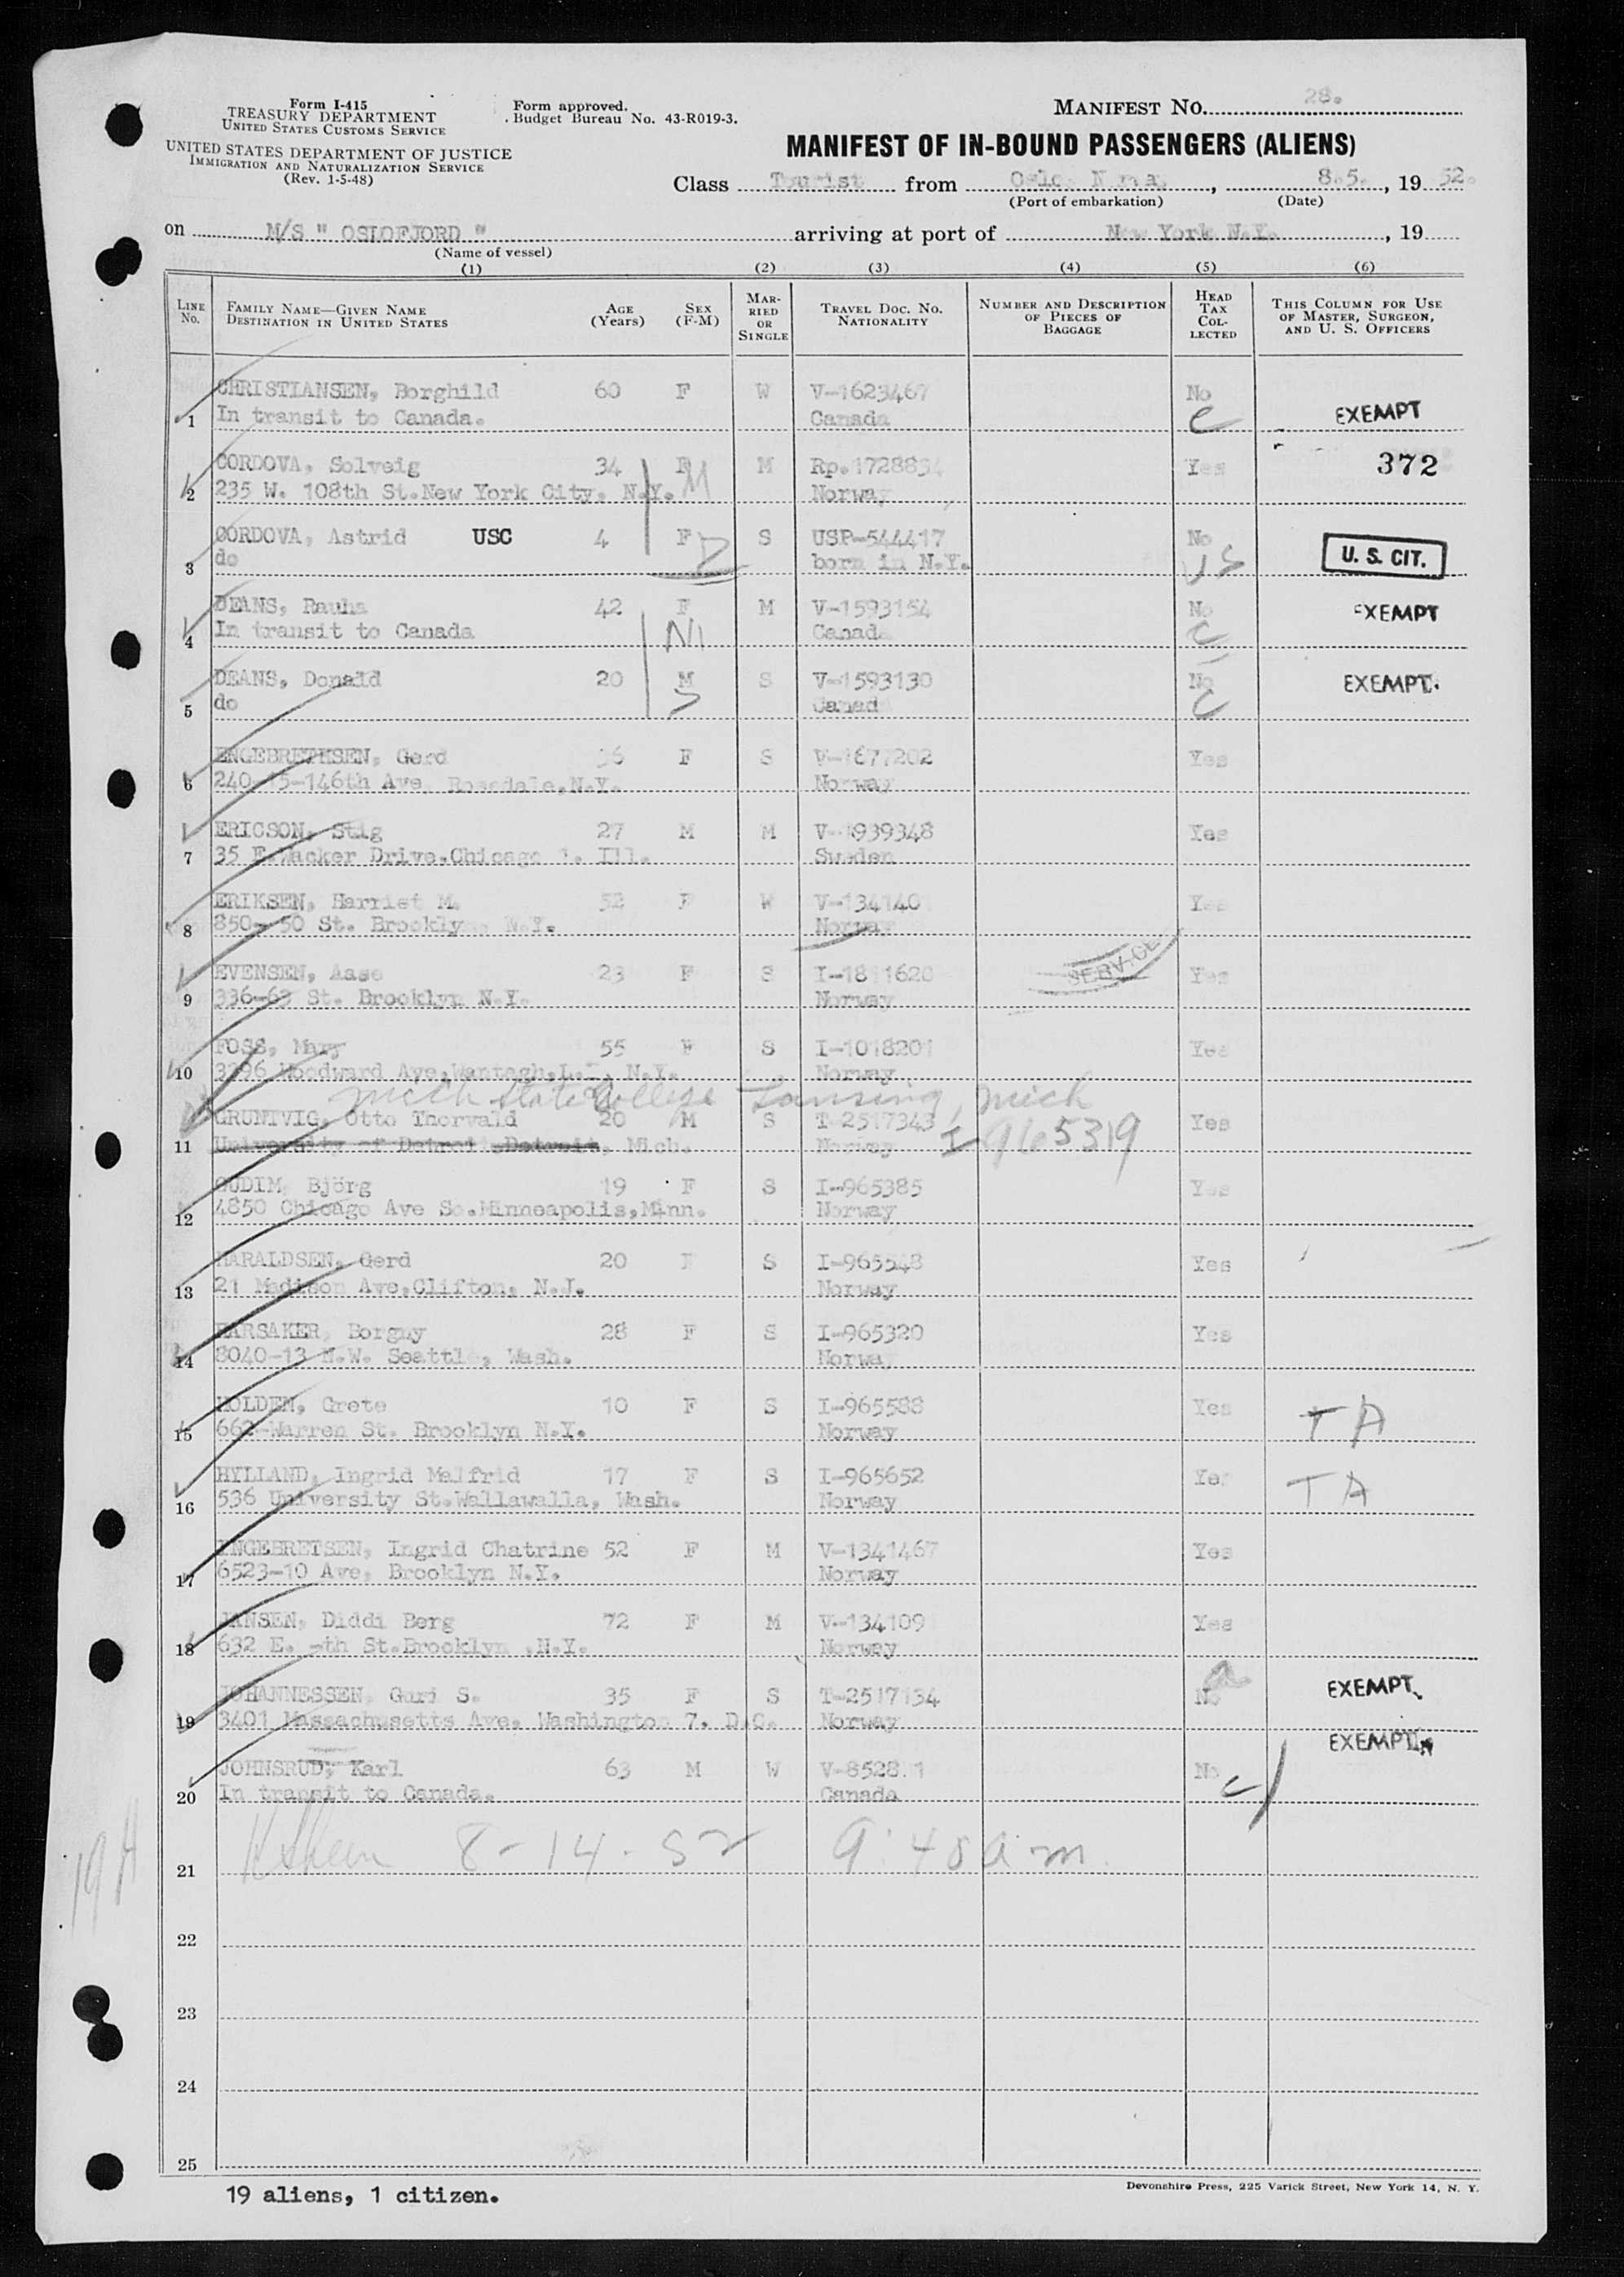 Form I-415
TREASURY DEPARTMENT
UNITED STATES CUSTOMS SERVICE
UNITED STATES DEPARTMENT OF JUSTICE
IMMIGRATION AND NATURALIZATION SERVICE
(Rev. 1-5-48)
Form approved.
Budget Bureau No. 43-R019-3.
MANIFEST NO. 28.
MANIFEST OF IN-BOUND PASSENGERS (ALIENS)
Class Tourist from Oslo, , 8.5. , 19 52.
(Port of embarkation) (Date)
on M/S " OSLOFJORD " arriving at port of New York N.Y. , 19
(Name of vessel)
(1) (2) (3) (4) (5) (6)
LINE No. FAMILY NAME—GIVEN NAME DESTINATION IN UNITED STATES AGE (Years) SEX (F-M) MARRIED OR SINGLE TRAVEL DOC. NO. NATIONALITY NUMBER AND DESCRIPTION OF PIECES OF BAGGAGE HEAD TAX COLLECTED THIS COLUMN FOR USE OF MASTER, SURGEON, AND U. S. OFFICERS
CHRISTIANSEN, Borghild 60 F W V-1623467 No
1 In transit to Canada. Canada C EXEMPT
CORDOVA, Solveig 34 F M Rp. Yes 372
2 235 W. 108th St.New York City. N.Y. M Norway
CORDOVA, Astrid USC 4 F S USP-544417 No
3 do D born in N.Y. US U. S. CIT.
DEANS, Rauha 42 F M V-1593154 No EXEMPT
4 In transit to Canada M Canada C
DEANS, Donald 20 M S V-1593130 No EXEMPT.
5 do S Canad C
ENGEBRETHSEN, Gerd F S V-1677202 Yes
6 240-15-146th Ave. Rosedale,N.Y. Norway
ERICSON, Stig 27 M M V-1939348 Yes
7 35 E.Wacker Drive.Chicago 1. Ill. Sweden
ERIKSEN, Harriet M. 52 F W V-134140 Yes
8 850-50 St. Brooklyn N.Y. Norway
EVENSEN, Aase 23 F S Yes
9 336-63 St. Brooklyn N.Y. Norway SERVICE
FOSS, Mary 55 F S I-1018201 Yes
10 3296 Woodward Ave,Wantagh,L.I. N.Y. Norway
Mich State College Lansing, Mich
GRUNTVIG, Otto Thorvald 20 M S T-2517343 Yes
11 University of Detroit Detroit, Mich. Norway I-965319
GUDIM, Björg 19 F S I-965385 Yes
12 4850 Chicago Ave So.Minneapolis,Minn. Norway
HARALDSEN, Gerd 20 F S I-965548 Yes
13 21 Madison Ave,Clifton, N.J. Norway
HARSAKER, Borgny 28 F S I-965320 Yes
14 8040-13 N.W. Seattle, Wash. Norway
HOLDEN, Grete 10 F S I-965588 Yes
15 662-Warren St. Brooklyn N.Y. Norway TA
HYLLAND, Ingrid Malfrid 17 F S I-965652 Yes
16 536 University St.Wallawalla, Wash. Norway TA
ENGEBRETSEN, Ingrid Chatrine 52 F M V-1341467 Yes
17 6523-10 Ave, Brooklyn N.Y. Norway
JANSEN, Diddi Berg 72 F M V-134109 Yes
18 632 E. St.Brooklyn ,N.Y. Norway
JOHANNESSEN, Guri S. 35 F S T-2517134 No EXEMPT
19 3401 Massachusetts Ave. Washington 7. D.C. Norway
EXEMPT
JOHNSRUD, Karl 63 M W No
20 In transit to Canada. Canada C
21 8-14-52 9:45 a.m.
22
23
24
25
19 aliens, 1 citizen.
Devonshire Press, 225 Varick Street, New York 14, N. Y.